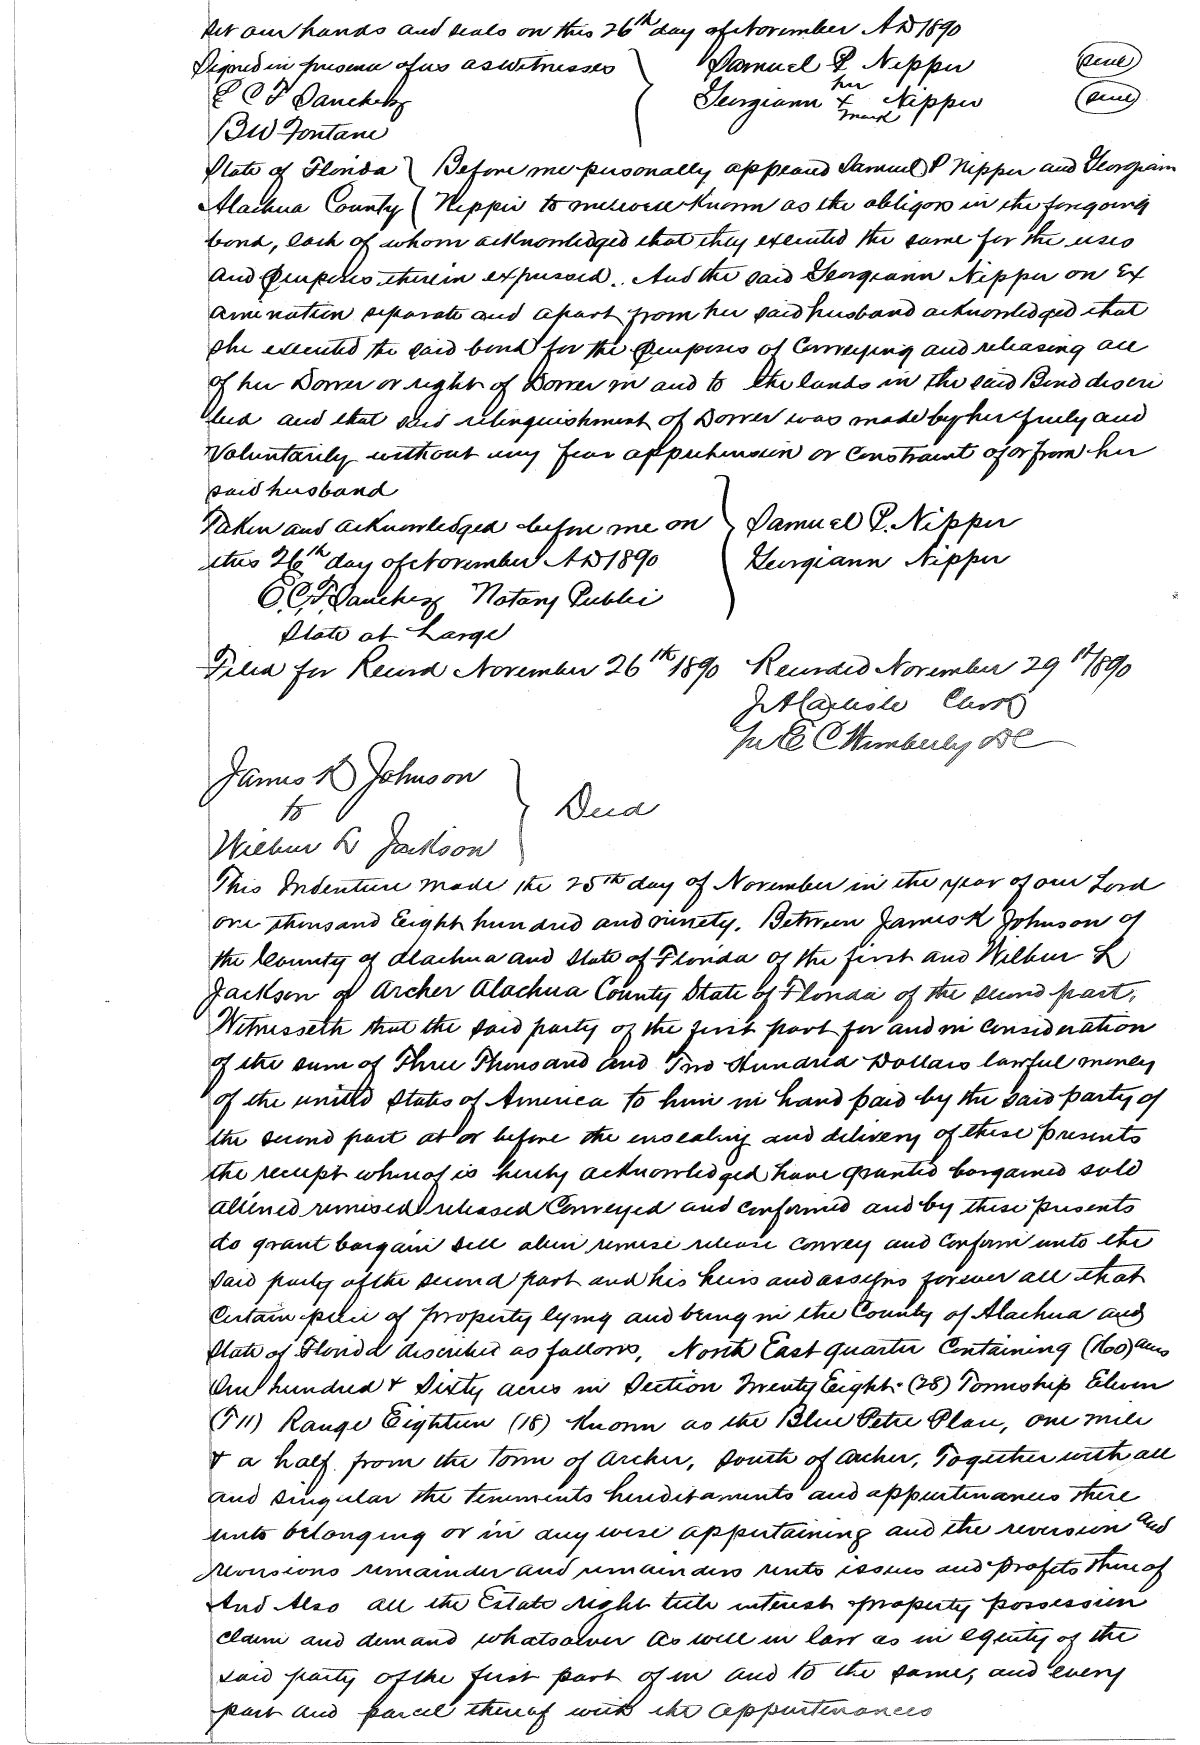 set our hands and seals on this 26th day of November AD 1890
Signed in presence of us as witnesses Samuel P Nipper (seal)
E C F Sanchez Georgiann her x mark Nipper (seal)
BW Fontane
State of Florida } Before me personally appeared Samuel P Nipper and Georgiann
Alachua County { Nipper to me well known as the obligors in the foregoing
bond, each of whom acknowledged that they executed the same for the uses
and purposes therein expressed. And the said Georgiann Nipper on Ex
amination separate and apart from her said husband acknowledged that
she executed the said bond for the purposes of Conveying and releasing all
of her Dower or right of Dower in and to the lands in the said Bond descri
bed and that said relinquishment of Dower was made by her freely and
Voluntarily without any fear apprehension or Constraint of or from her
said husband
Taken and acknowledged before me on } Samuel P. Nipper
this 26th day of November AD 1890 Georgiann Nipper
E. C. F. Sanchez Notary Public
State at Large
Filed for Record November 26th 1890 Recorded November 29th 1890
J A Carlisle Clerk
Pr E C Wimberly DC
James K Johnson
to } Deed
Wilbur L Jackson
This Indenture made the 25th day of November in the year of our Lord
one thousand Eight hundred and ninety. Between James K Johnson of
the County of Alachua and State of Florida of the first and Wilbur L
Jackson of Archer Alachua County State of Florida of the second part,
Witnesseth that the said party of the first part for and in consideration
of the sum of Three Thousand and Two Hundred Dollars lawful money
of the united States of America to him in hand paid by the said party of
the second part at or before the ensealing and delivery of these presents
the receipt whereof is hereby acknowledged have granted bargained sold
aliened remised released Conveyed and confirmed and by these presents
do grant bargain sell alien remise release convey and confirm unto the
said party of the second part and his heirs and assigns forever all that
Certain piece of property lying and being in the County of Alachua and
State of Florida discribed as follows, North East quarter Containing (160) acres
One hundred & Sixty acres in Section Twenty Eight (28) Township Eleven
(T11) Range Eighteen (18) Known as the Blue Pete Place, one mile
& a half from the town of Archer, South of Archer, Together with all
and singular the tenements hereditaments and appurtenances there
unto belonging or in any wise appertaining and the reversion and
reversions remainder and remainders rents issues and profits thereof
And Also all the Estate right title interest property possession
claim and demand whatsoever as well in law as in equity of the
said party of the first part of in and to the same, and every
part and parcel thereof with the appurtenances